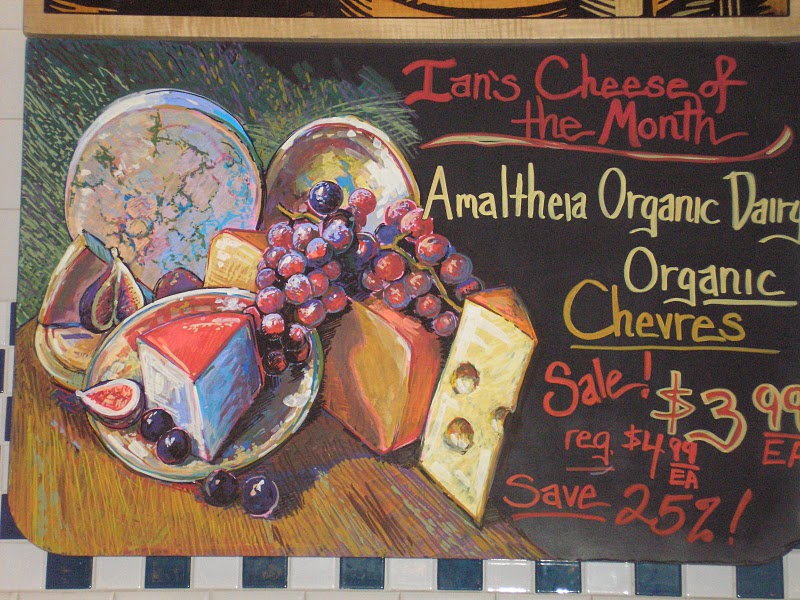 Ian's Cheese of
the Month
Amaltheia Organic Dairy
Organic
Chevres
Sale! $3 99 EA
reg. $4.99 EA
Save 25%!